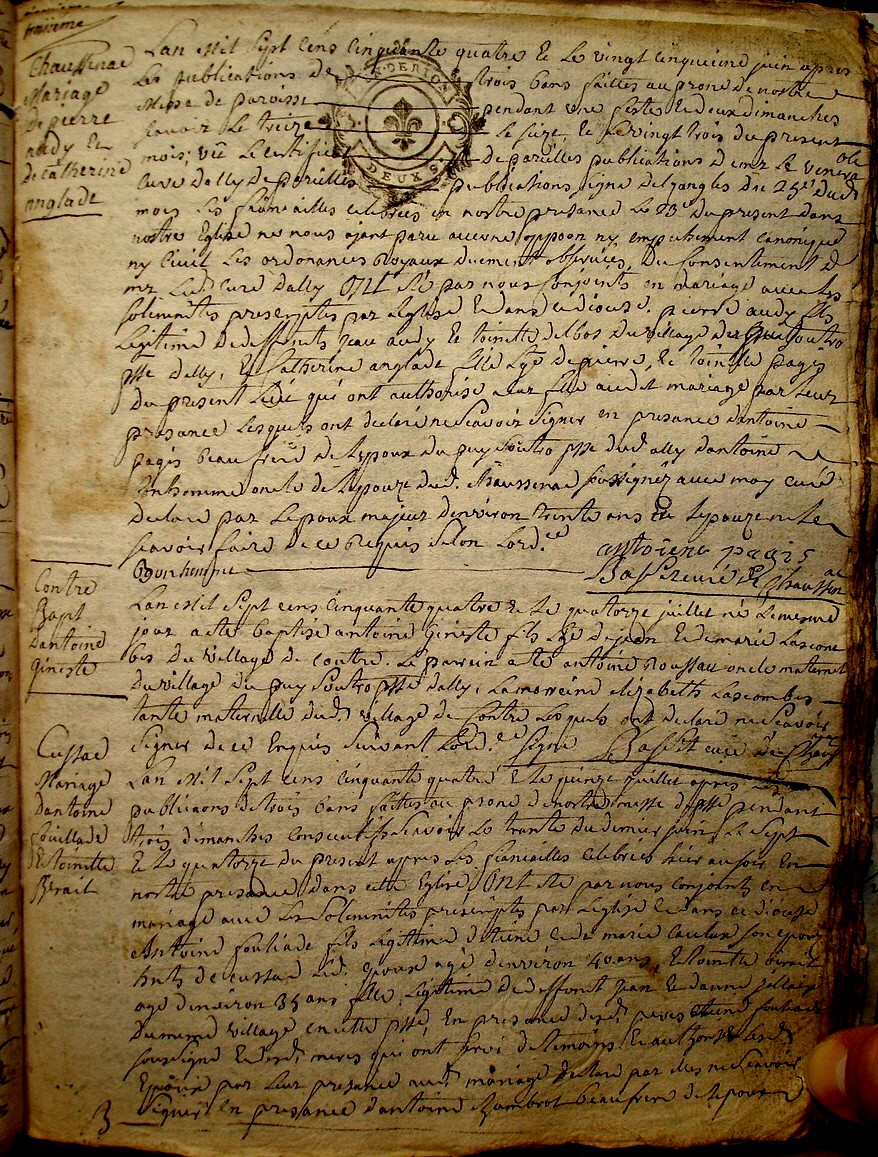 troisieme
Chaussenac
Mariage
de pierre
audy et
de catherine
anglade
Lan Mil Sept Cens Cinquante quatre et le vingt cinquieme juin apres
Les publications de trois bans faittes au prone de nostre
Messe de paroisse pendant une feste et deux dimanches
scavoir Le treize Le seize, et Le vingt trois du present
mois; vû Le certificat de pareilles publications de mr Le venerable
Curé dally de pareilles publications signé delzangles du 25e dud
mois Les fiançailles celebrées en nostre presance Le 13e du present dans
nostre Eglise ne nous ayant paru aucune oppoon ny empechement canonique
ny civil Les ordonances Royaux duement observées, du consentement de
mr Led. curé dally ont été par nous conjoints en mariage avec Les
solemnites prescriptes par Leglise et dans ce diocese. pierre audy fils
Legitime de deffunts jean audy et toinette delbos du village du puy soutro
psse dally, et Catherine anglade fille Lge de pierre, et toinette pagis
du present Lieu qui ont authorisé leur fille aud. mariage par leur
presance Lesquels ont declaré ne scavoir signer en presance dantoine
pagis beau frere de Lepoux du puy soutro psse dud. ally dantoine
bonhomme oncle de Lepouze dud. Chaussenac soussignéz avec moy curé
declaré par Lepoux majeur denviron trente ans et Lepouze ne Le
scavoir faire de ce Requis selon Lord.ce antoiene pagis
Bonhomme Bassit curé de Chaussenac
Contre
Bapt
dantoine
Gineste
Lan Mil Sept cens Cinquante quatre et Le quatorze juillet né Le mesme
jour a eté baptisé antoine Gineste fils Lge de jean et de marie Lascom
bes du village de contre. Le parrein a eté antoine Roussau oncle maternel
du village du puy soutro psse dally, La marreine elizabeth Lascombes
tante maternelle dud. village de Contre Lesquels ont declaré ne scavoir
signer de ce Enquis suivant Lord.ce signé Bassit curé de Chauss
Cussac
Mariage
dantoine
fouillade
et toinette
Berait
Lan Mil Sept cens Cinquante quatre et Le quinze juillet apres Les
publicaons de trois bans faittes au prone de nostre messe de psse pendant
trois dimanches consecutifs scavoir Le trante du dernier juin, Le sept
et Le quatorze du present apres Les fiancailles celebrées hier au soir En
nostre presance dans cette Eglise Ont été par nous conjoints en
mariage avec Les solemnites prescriptes par Leglise et dans ce diocese
Antoine fouliade fils Legitime detiene et de marie
hnts de cussac Led. epoux agé denviron 40 ans, et toinette berait
agé denviron 35 ans fille Legitime de deffunt jean et de anne
du meme village en cette psse, En presance desd. peres etiene fouliade
soussigné et desd. meres qui ont servi de temoins et authorisé Lesd.
Epoux par leur presance aud. mariage declaré par elles ne scavoir
signer En presance dantoine Zambrot beau frere de Lepoux